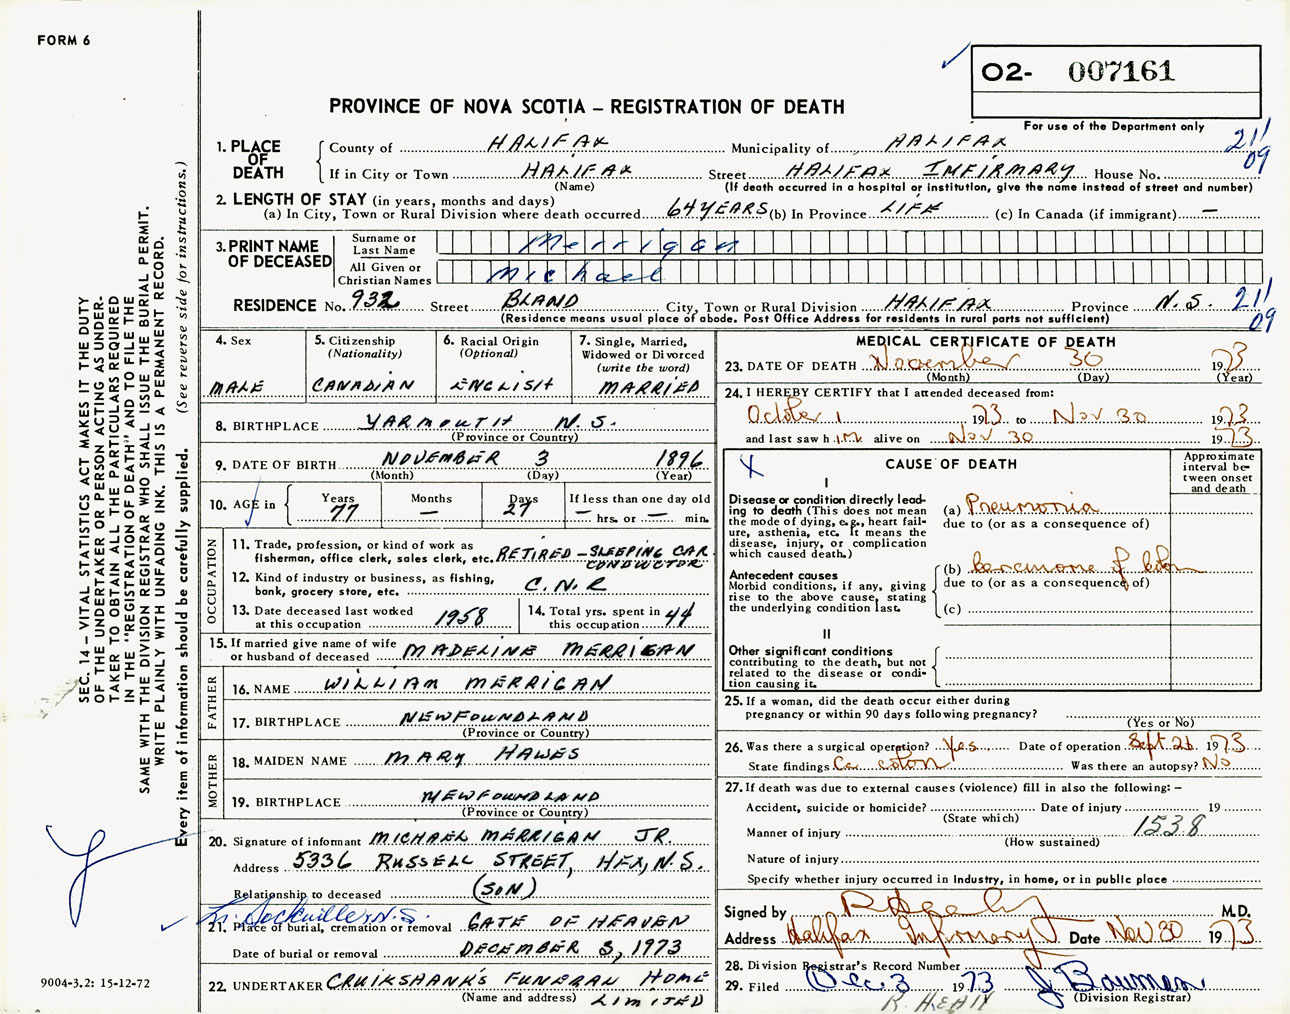 FORM 6
O2- 007161
PROVINCE OF NOVA SCOTIA – REGISTRATION OF DEATH
For use of the Department only
1. PLACE OF DEATH
County of HALIFAX Municipality of HALIFAX 211
If in City or Town HALIFAX Street HALIFAX INFIRMARY House No. 09
(Name) (If death occurred in a hospital or institution, give the name instead of street and number)
2. LENGTH OF STAY (in years, months and days)
(a) In City, Town or Rural Division where death occurred 64 YEARS (b) In Province LIFE (c) In Canada (if immigrant) —
3. PRINT NAME OF DECEASED
Surname or Last Name Merrigan
All Given or Christian Names Michael
RESIDENCE No. 932 Street BLAND City, Town or Rural Division HALIFAX Province N.S. 211
(Residence means usual place of abode. Post Office Address for residents in rural parts not sufficient) 09
4. Sex
MALE
5. Citizenship
(Nationality)
CANADIAN
6. Racial Origin
(Optional)
ENGLISH
7. Single, Married,
Widowed or Divorced
(write the word)
MARRIED
8. BIRTHPLACE YARMOUTH N.S.
(Province or Country)
9. DATE OF BIRTH NOVEMBER 3 1896
(Month) (Day) (Year)
10. AGE in
Years Months Days If less than one day old
77 — 27 — hrs. or — min.
OCCUPATION
11. Trade, profession, or kind of work as
fisherman, office clerk, sales clerk, etc. RETIRED – SLEEPING CAR
CONDUCTOR
12. Kind of industry or business, as fishing,
bank, grocery store, etc. C.N.R
13. Date deceased last worked
at this occupation 1958
14. Total yrs. spent in
this occupation 44
15. If married give name of wife
or husband of deceased MADELINE MERRIGAN
FATHER
16. NAME WILLIAM MERRIGAN
17. BIRTHPLACE NEWFOUNDLAND
(Province or Country)
MOTHER
18. MAIDEN NAME MARY HAWES
19. BIRTHPLACE NEWFOUNDLAND
(Province or Country)
20. Signature of informant MICHAEL MERRIGAN JR.
Address 5336 RUSSELL STREET, HFX, N.S.
Relationship to deceased (SON)
Sackville N.S.
21. Place of burial, cremation or removal GATE OF HEAVEN
Date of burial or removal DECEMBER 3, 1973
22. UNDERTAKER CRUIKSHANK'S FUNERAL HOME
(Name and address) LIMITED
MEDICAL CERTIFICATE OF DEATH
23. DATE OF DEATH November 30 1973
(Month) (Day) (Year)
24. I HEREBY CERTIFY that I attended deceased from:
October 1 1973 to Nov 30 1973
and last saw h im alive on Nov 30 1973
X
CAUSE OF DEATH
Approximate
interval be-
tween onset
and death
I
Disease or condition directly lead-
ing to death (This does not mean
the mode of dying, e.g., heart fail-
ure, asthenia, etc. It means the
disease, injury, or complication
which caused death.)
(a) Pneumonia
due to (or as a consequence of)
Antecedent causes
Morbid conditions, if any, giving
rise to the above cause, stating
the underlying condition last.
(b) Carcinoma of colon
due to (or as a consequence of)
(c)
II
Other significant conditions
contributing to the death, but not
related to the disease or condi-
tion causing it.
25. If a woman, did the death occur either during
pregnancy or within 90 days following pregnancy?
(Yes or No)
26. Was there a surgical operation? Yes Date of operation Sept. 26 1973
State findings Ca colon Was there an autopsy? No
27. If death was due to external causes (violence) fill in also the following: –
Accident, suicide or homicide? Date of injury 19
(State which)
Manner of injury 1538
(How sustained)
Nature of injury
Specify whether injury occurred in industry, in home, or in public place
Signed by M.D.
Address Halifax Infirmary Date Nov 30 1973
28. Division Registrar's Record Number
29. Filed Dec 3 1973 J Bauman
(Division Registrar)
SEC. 14 – VITAL STATISTICS ACT MAKES IT THE DUTY
OF THE UNDERTAKER OR PERSON ACTING AS UNDER-
TAKER TO OBTAIN ALL THE PARTICULARS REQUIRED
IN THE "REGISTRATION OF DEATH" AND TO FILE THE
SAME WITH THE DIVISION REGISTRAR WHO SHALL ISSUE THE BURIAL PERMIT.
WRITE PLAINLY WITH UNFADING INK. THIS IS A PERMANENT RECORD.
Every item of information should be carefully supplied. (See reverse side for instructions.)
9004-3.2: 15-12-72